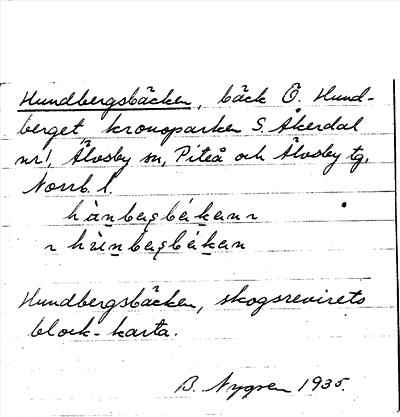 Hundbergsbäcken, bäck Ö. Hund-
berget kronoparken S. Åkerdal
nr 1, Älvsby sn, Piteå och Älvsby tg,
Norrb. l.
Hundbergsbäcken, skogsrevirets
block-karta.
B. Nygren 1935.